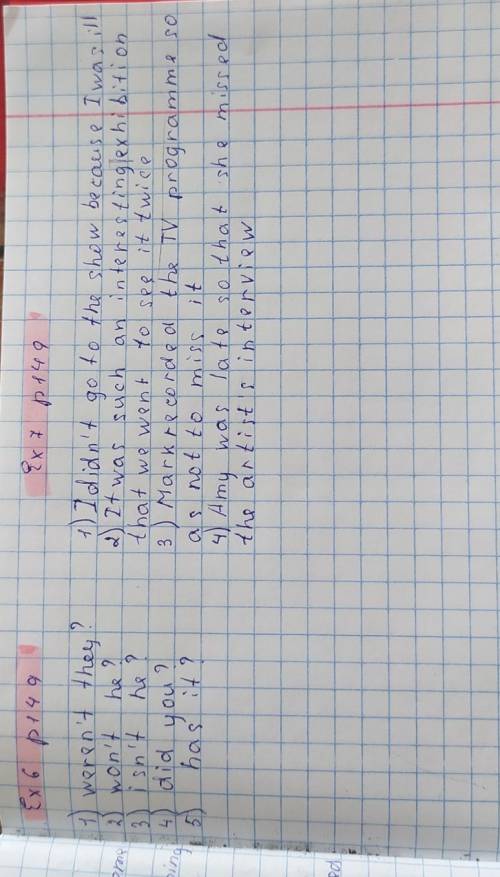 Ex 6 p149
1) weren't they?
2) won't he?
3) isn't he?
4) did you?
5) has it?
Ex 7 p149
1) I didn't go to the show because I was ill
2) It was such an interesting exhibition
that we went to see it twice
3) Mark recorded the TV programme so
as not to miss it
4) Amy was late so that she missed
the artist's interview